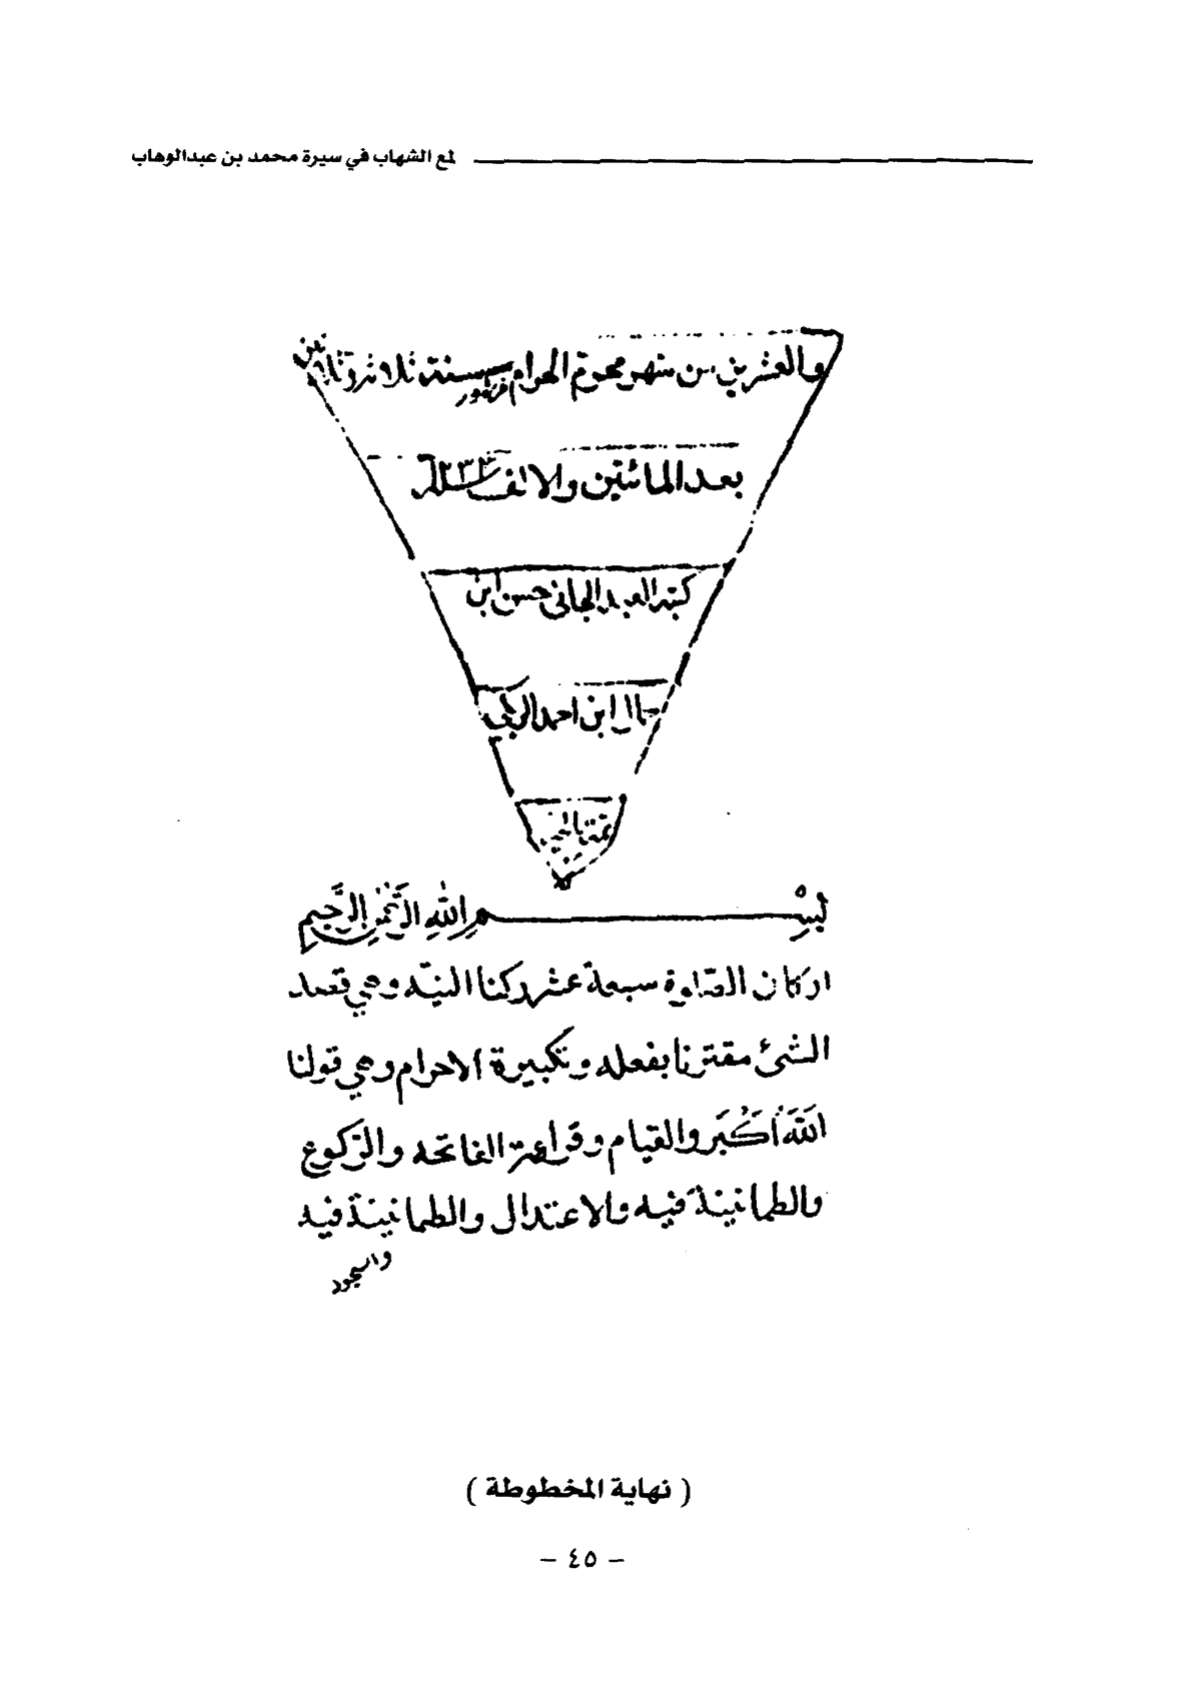 لمع الشهاب في سيرة محمد بن عبدالوهاب
والعشرين من شهر محرم الحرام سنة ثلاثة وثلاثين
بعد المائتين والالف ١٢٣٣
كتبه العبد الجاني حسن ابن
جمال ابن احمد الريكي
بسم الله الرحمن الرحيم
اركان الصلوة سبعة عشر ركنا النيّة وهي قصد
الشئ مقترنا بفعله وتكبيرة الاحرام وهي قولنا
اللّهُ أَكْبَر والقيام وقراءة الفاتحه والركوع
والطمانينة فيه والاعتدال والطمانينة فيه
والسجود
( نهاية المخطوطة )
- ٤٥ -